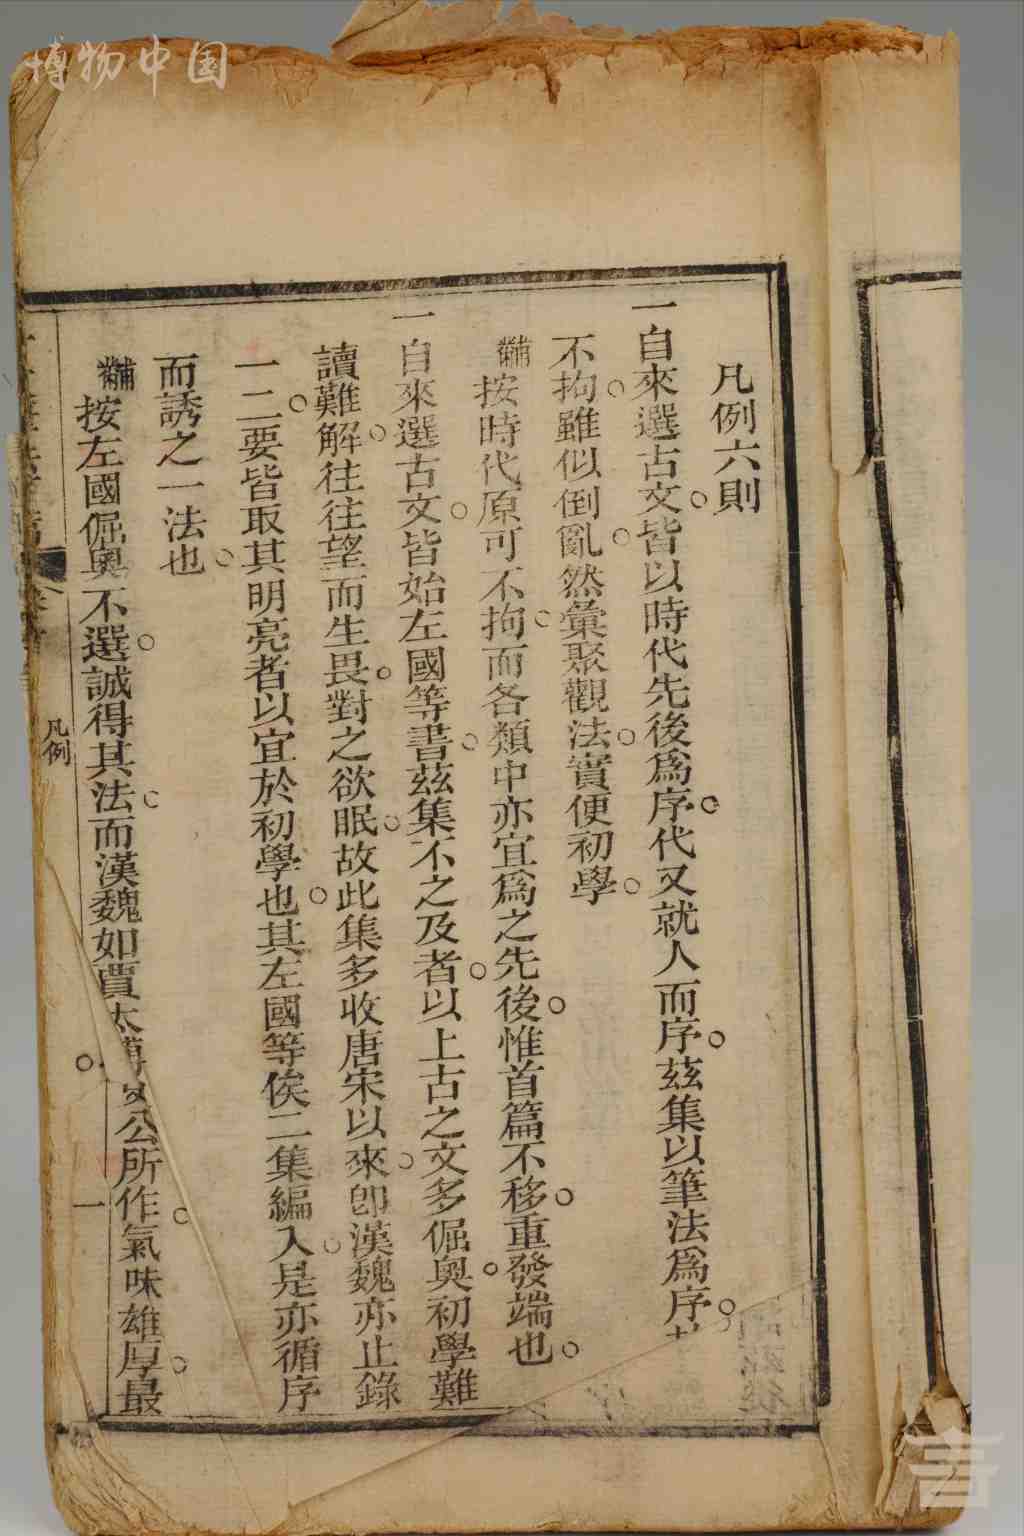 博物中国
凡例六則
一自來選古文皆以時代先後爲序代又就人而序茲集以筆法爲序
不拘雖似倒亂然彙聚觀法實便初學
增補按時代原可不拘而各類中亦宜爲之先後惟首篇不移重發端也
一自來選古文皆始左國等書茲集不之及者以上古之文多倔奧初學難
讀難解往往望而生畏對之欲眠故此集多收唐宋以來卽漢魏亦止錄
一二要皆取其明亮者以宜於初學也其左國等俟二集編入是亦循序
而誘之一法也
增補按左國倔奧不選誠得其法而漢魏如賈太公所作氣味雄厚最
凡例
一